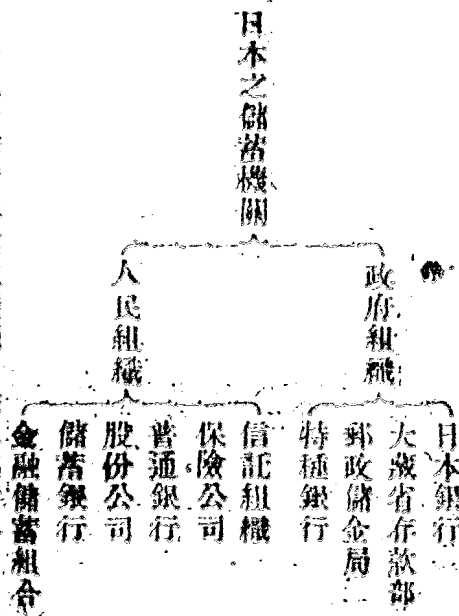 日本之儲蓄機關
政府組織
日本銀行
大藏省存款部
郵政儲金局
特種銀行
人民組織
信託組織
保險公司
普通銀行
股份公司
儲蓄銀行
金融儲蓄組合